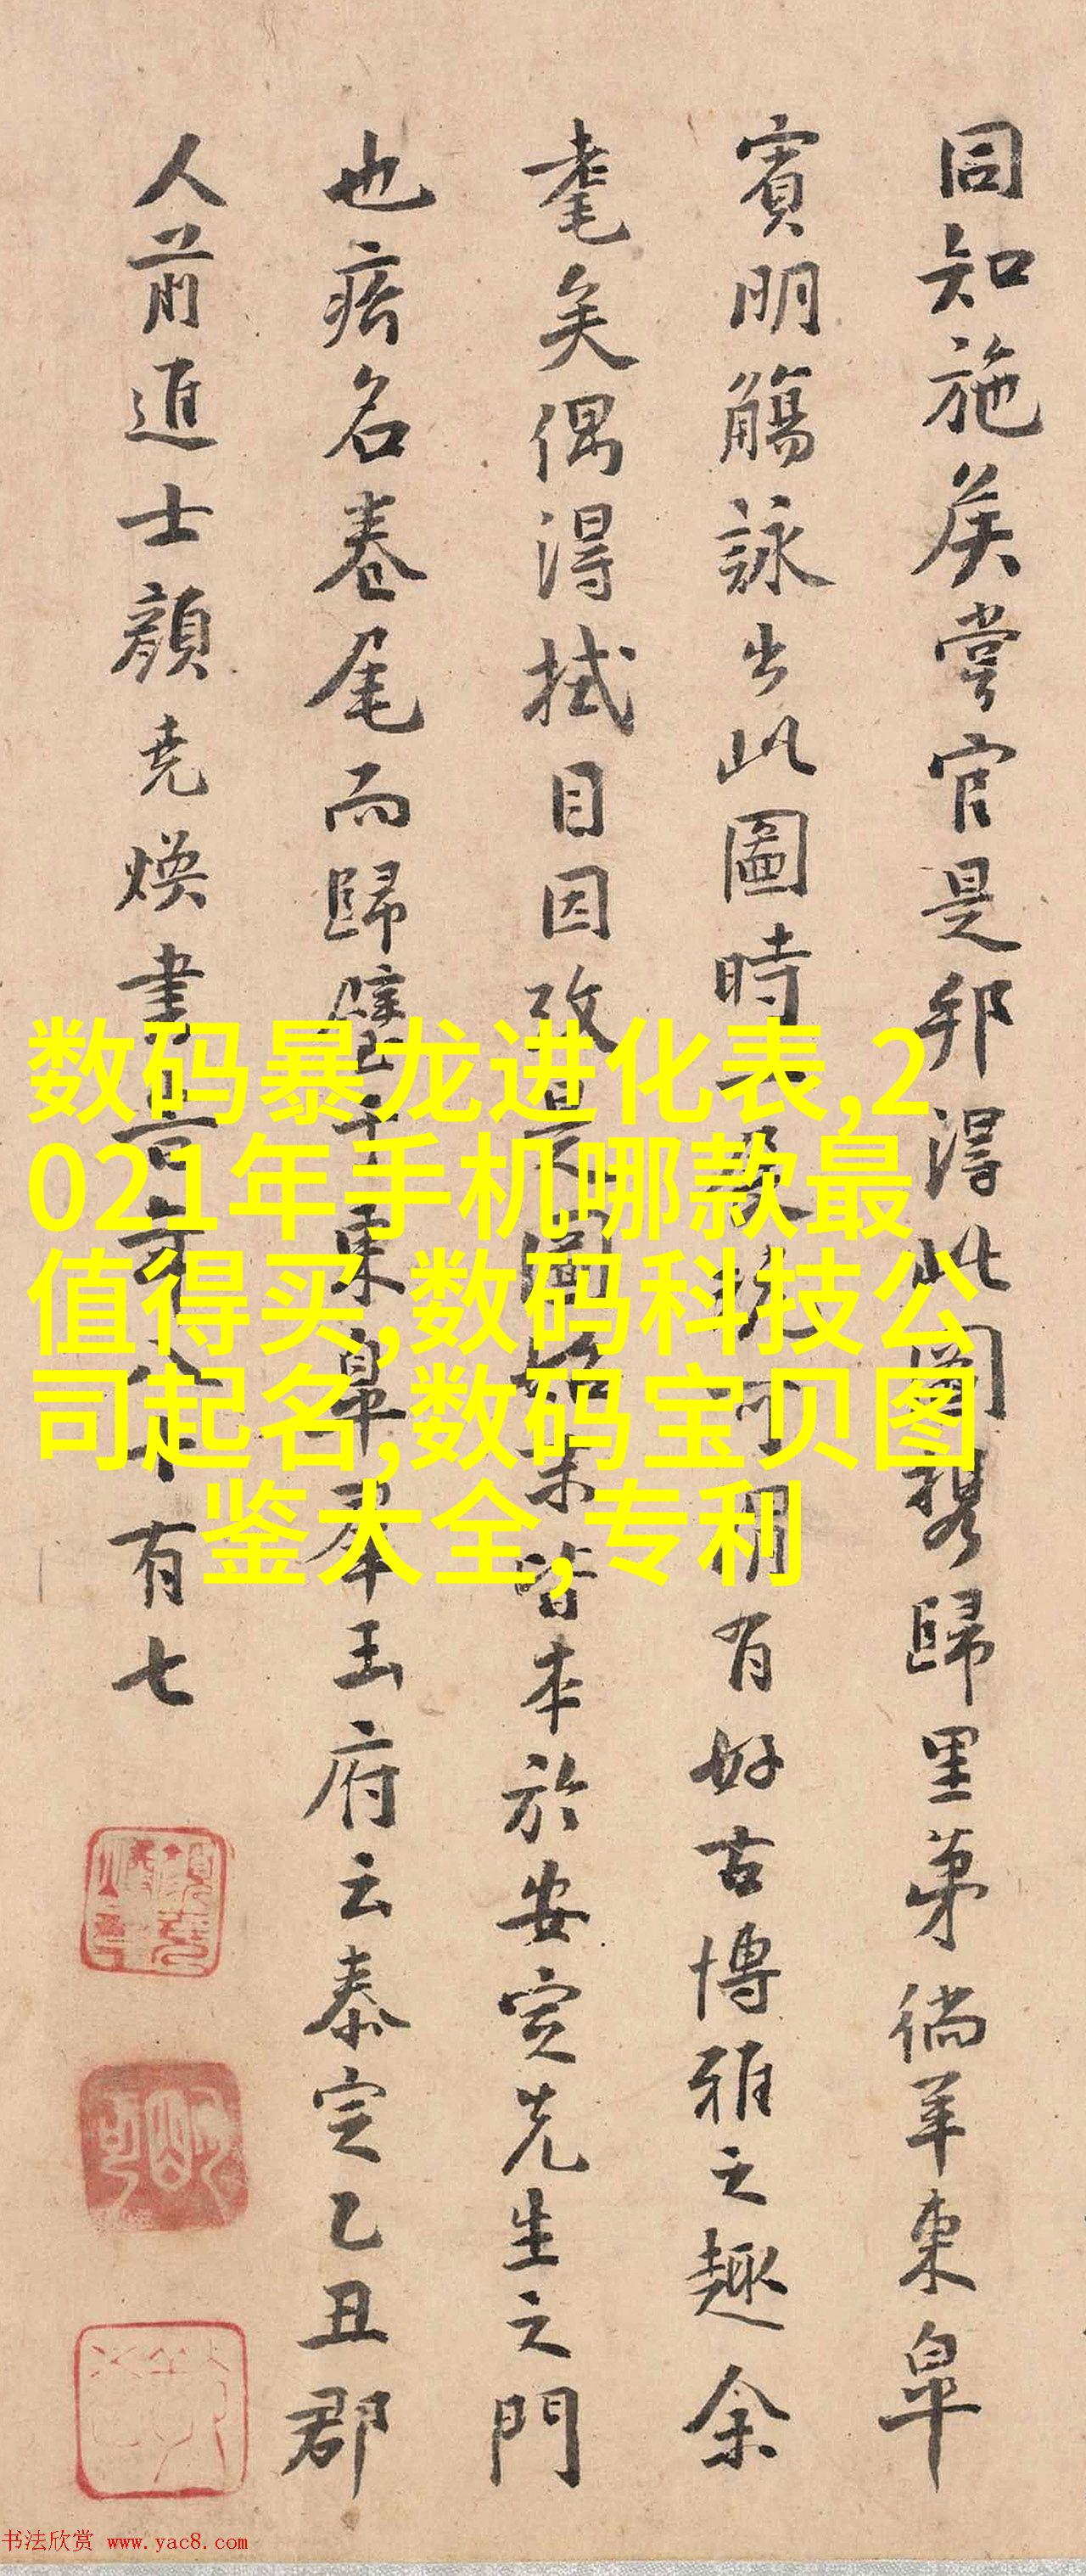 同知施侯嘗官是邦得此圖携歸里第徜羊東皐
賓明觴詠出此圖時可謂有好古博雅之趣余
耄矣偶得拭目因攷是圖始末皆本於安定先生之門
也疥名卷尾而歸璧于東皐奉玉府云泰定乙丑郡
人前進士顔堯煥書旹年八十有七
数码暴龙进化表,2
021年手机哪款最
值得买,数码科技公
司起名,数码宝贝图
鉴大全,专利
书法欣赏 www.yac8.com